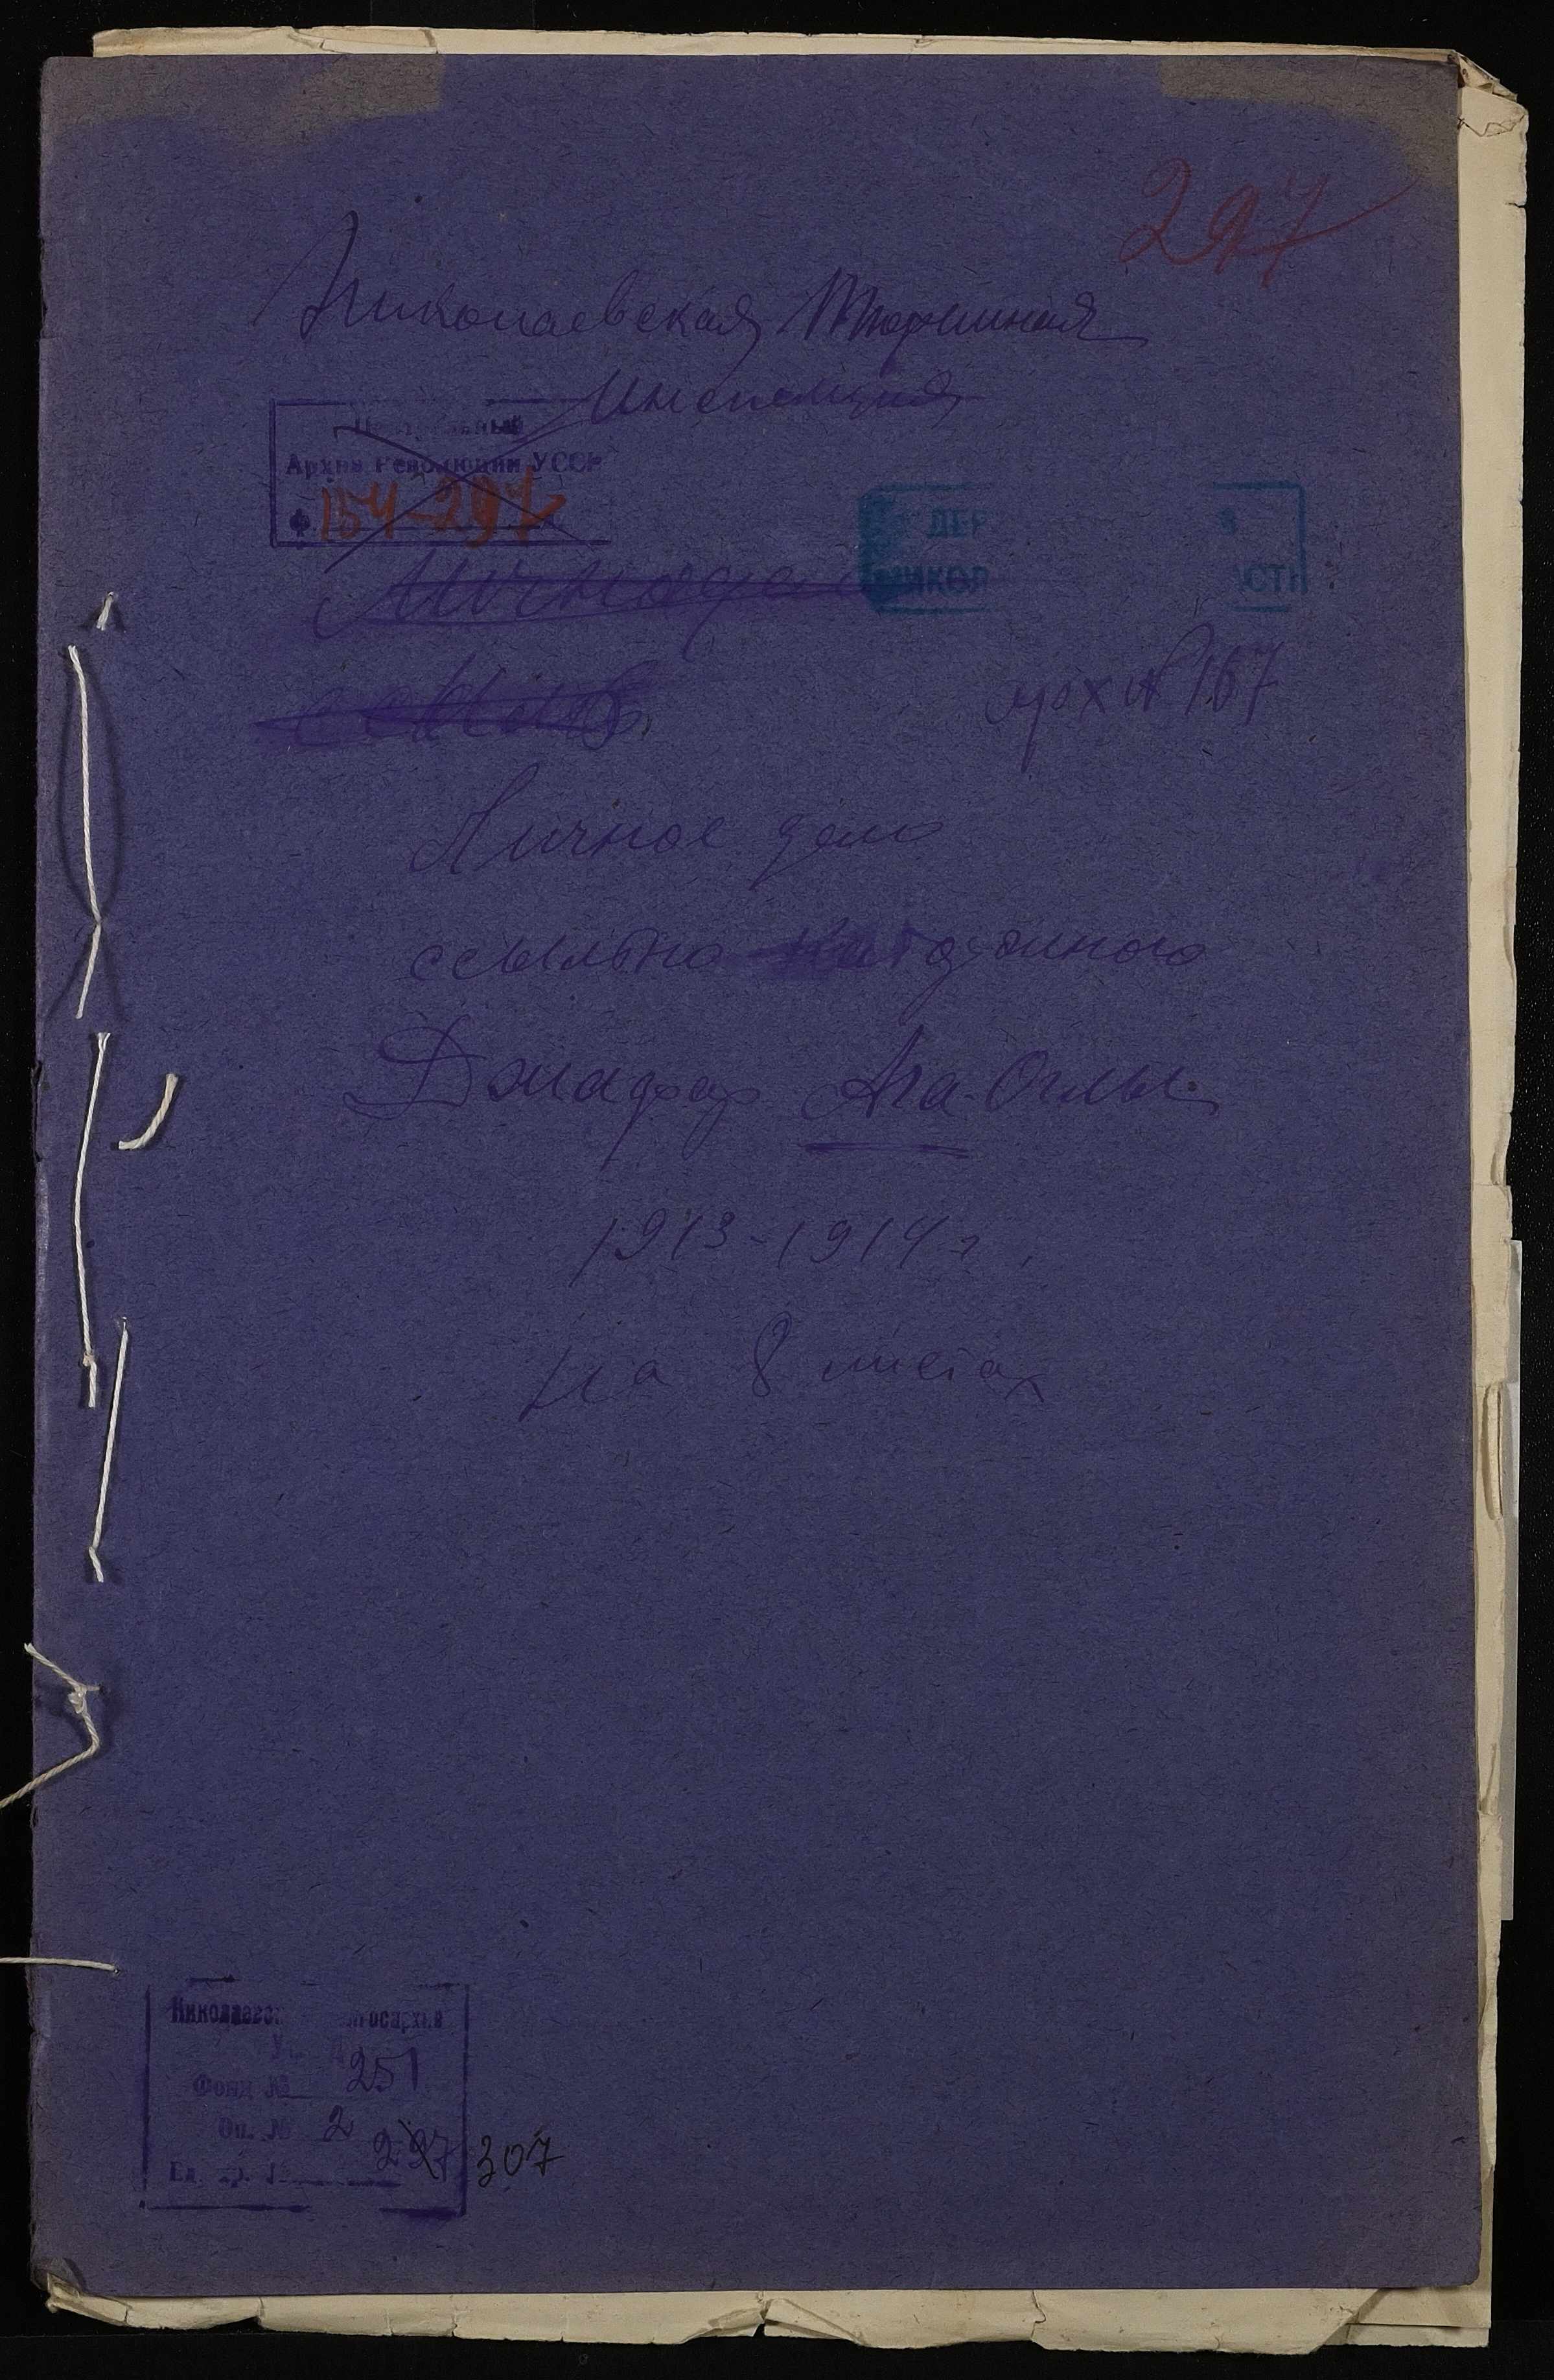 297
Николаевская Тюремная
Инспекция
Центральный
Архив Революции УССР
Ф 154-297
ДЕР
МИКОЛ
арх № 167
Личное дело
ссыльно каторжного
Джафар Ага-Оглы
1913-1914 г.
на 8 листах
Фонд № 251
Оп. № 2
297 307